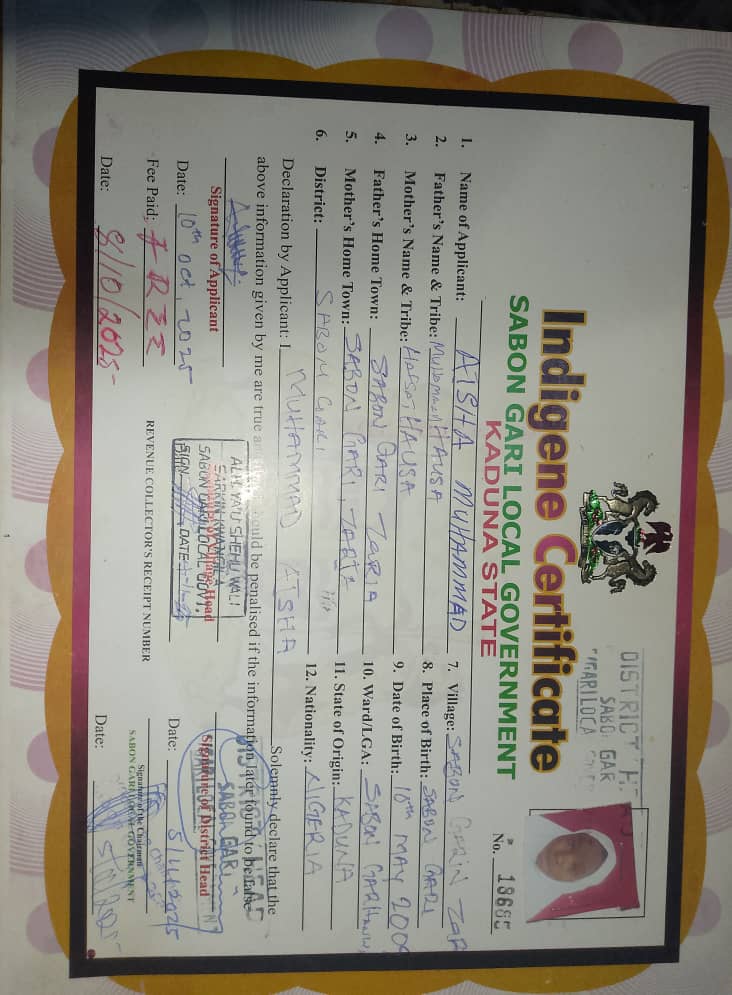 DISTRICT HEAD
SABO GAR
GARI LOCA
Indigene Certificate
SABON GARI LOCAL GOVERNMENT
KADUNA STATE
No. 18685
1. Name of Applicant: AISHA MUHAMMAD
2. Father's Name & Tribe: Muhammad HAUSA
3. Mother's Name & Tribe: HAFSAT HAUSA
4. Father's Home Town: SABON GARI ZARIA
5. Mother's Home Town: SABON GARI, ZARIA
6. District: SABON GARI
7. Village: SABON GARIN ZAR
8. Place of Birth: SABON GARI
9. Date of Birth: 10th MAY 200
10. Ward/LGA: SABON GARI
11. State of Origin: KADUNA
12. Nationality: NIGERIA
Declaration by Applicant: I MUHAMMAD AISHA Solemnly declare that the
above information given by me are true and should be penalised if the information later found to be false
Signature of Applicant
Date: 10th Oct, 2025
ALH. YA'U SHEHU WALI
SABON GARI LOCAL GOVT.
SIGN DATE
Village Head
SABON GARI
Signature of District Head
Date: 5/11/2025
Fee Paid: FREE
Date: 8/10/2025
REVENUE COLLECTOR'S RECEIPT NUMBER
Signature of the Chairman
SABON GARI LOCAL GOVERNMENT
Date: